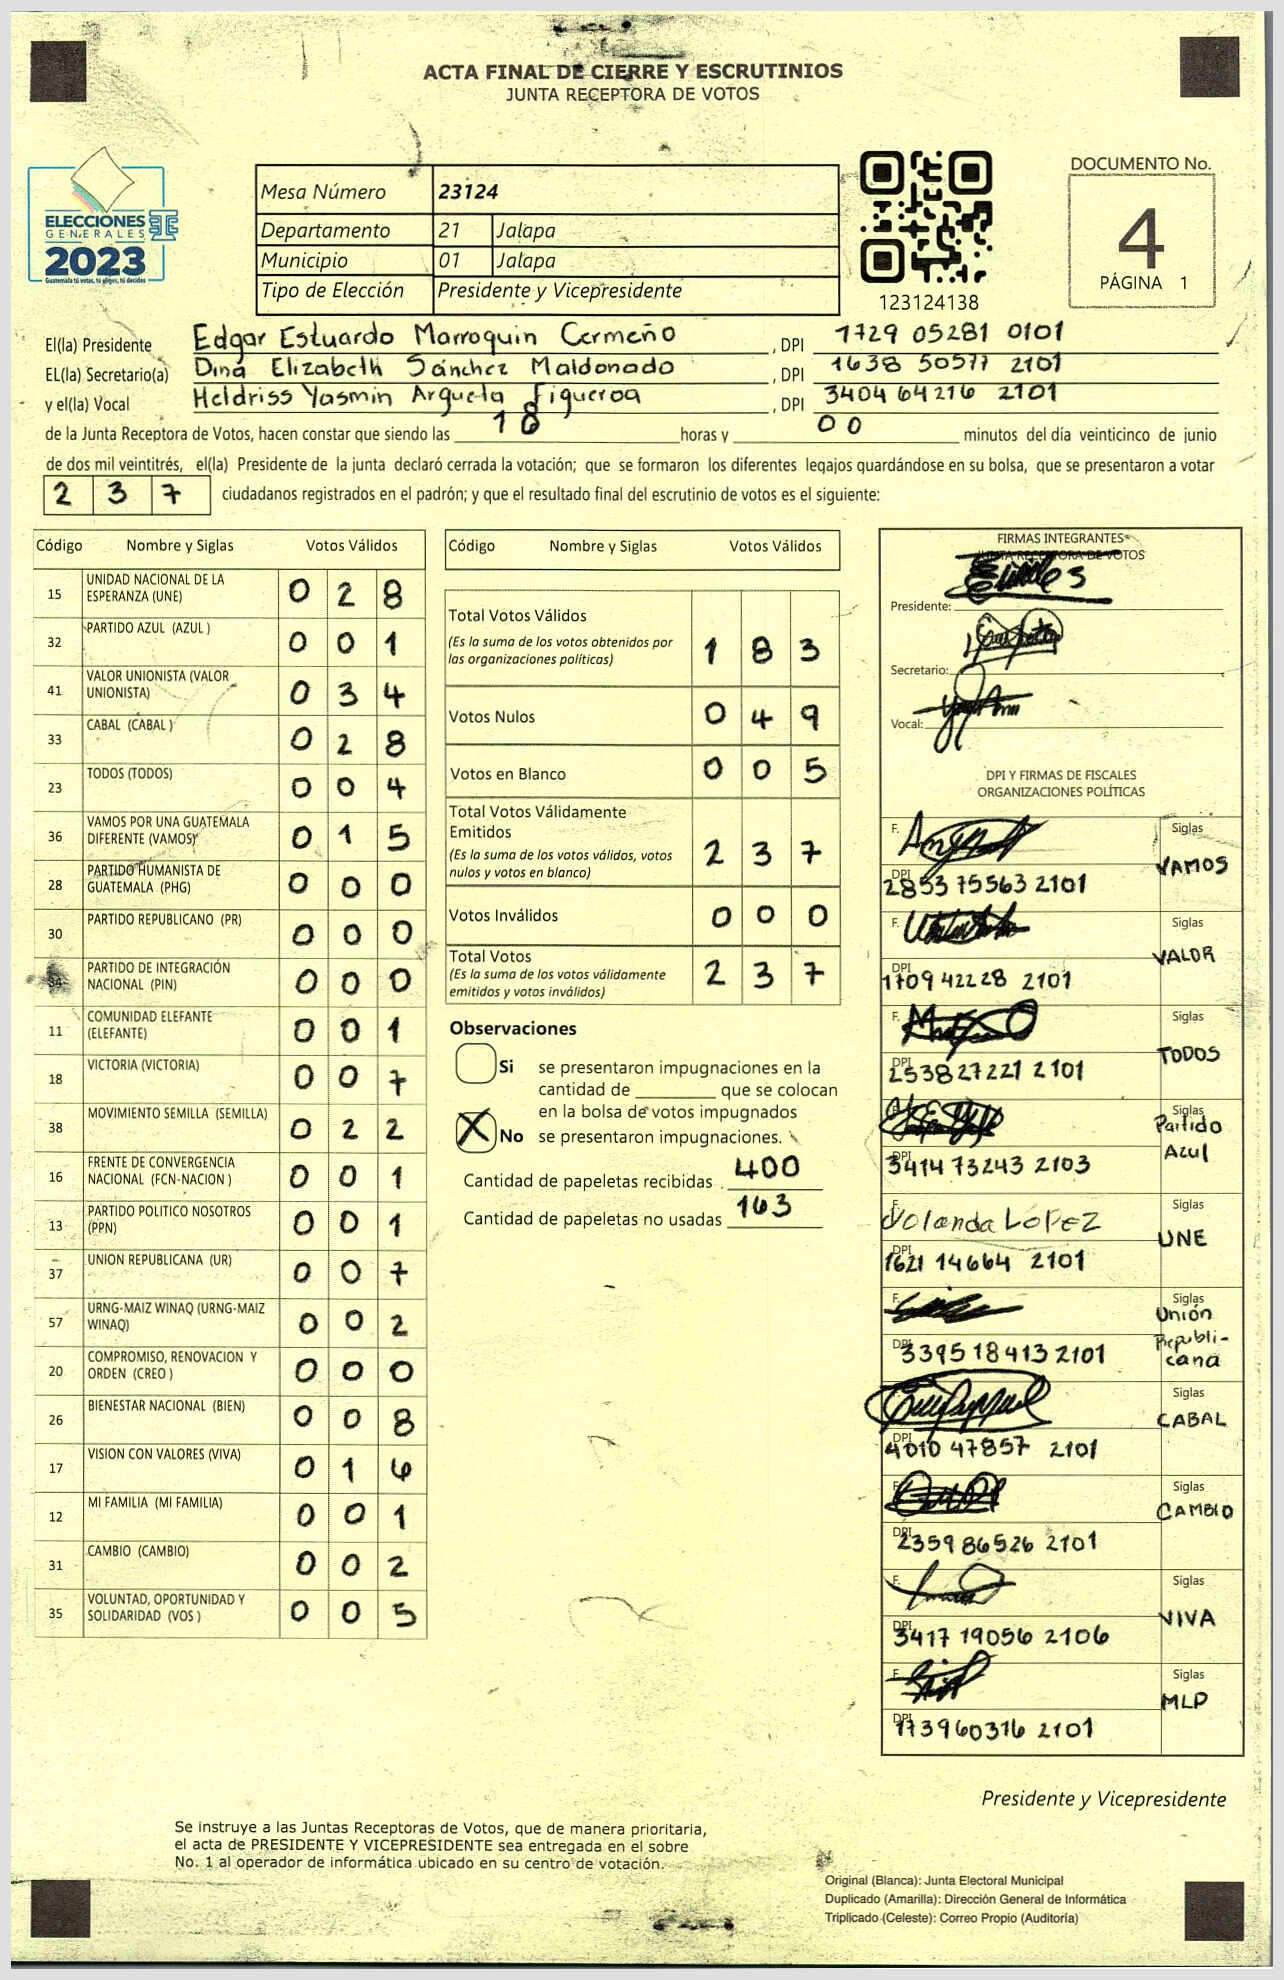 ACTA FINAL DE CIERRE Y ESCRUTINIOS
JUNTA RECEPTORA DE VOTOS
ELECCIONES
GENERALES
2023
Guatemala tú votas, tú eliges, tú decides
Mesa Número 23124
Departamento 21 Jalapa
Municipio 01 Jalapa
Tipo de Elección Presidente y Vicepresidente
123124138
DOCUMENTO No.
4
PÁGINA 1
El(la) Presidente Edgar Estuardo Marroquin Cermeño, DPI 1729 05281 0101
EL(la) Secretario(a) Dina Elizabeth Sánchez Maldonado, DPI 1638 50577 2101
y el(la) Vocal Heldriss Yasmin Argueta Figueroa, DPI 3404 64216 2101
de la Junta Receptora de Votos, hacen constar que siendo las 18 horas y 00 minutos del día veinticinco de junio
de dos mil veintitrés, el(la) Presidente de la junta declaró cerrada la votación; que se formaron los diferentes legajos guardándose en su bolsa, que se presentaron a votar
237 ciudadanos registrados en el padrón; y que el resultado final del escrutinio de votos es el siguiente:
Código Nombre y Siglas Votos Válidos
15 UNIDAD NACIONAL DE LA ESPERANZA (UNE) 0 2 8
32 PARTIDO AZUL (AZUL ) 0 0 1
41 VALOR UNIONISTA (VALOR UNIONISTA) 0 3 4
33 CABAL (CABAL ) 0 2 8
23 TODOS (TODOS) 0 0 4
36 VAMOS POR UNA GUATEMALA DIFERENTE (VAMOS) 0 1 5
28 PARTIDO HUMANISTA DE GUATEMALA (PHG) 0 0 0
30 PARTIDO REPUBLICANO (PR) 0 0 0
34 PARTIDO DE INTEGRACIÓN NACIONAL (PIN) 0 0 0
11 COMUNIDAD ELEFANTE (ELEFANTE) 0 0 1
18 VICTORIA (VICTORIA) 0 0 7
38 MOVIMIENTO SEMILLA (SEMILLA) 0 2 2
16 FRENTE DE CONVERGENCIA NACIONAL (FCN-NACION ) 0 0 1
13 PARTIDO POLITICO NOSOTROS (PPN) 0 0 1
37 UNION REPUBLICANA (UR) 0 0 7
57 URNG-MAIZ WINAQ (URNG-MAIZ WINAQ) 0 0 2
20 COMPROMISO, RENOVACION Y ORDEN (CREO ) 0 0 0
26 BIENESTAR NACIONAL (BIEN) 0 0 8
17 VISION CON VALORES (VIVA) 0 1 6
12 MI FAMILIA (MI FAMILIA) 0 0 1
31 CAMBIO (CAMBIO) 0 0 2
35 VOLUNTAD, OPORTUNIDAD Y SOLIDARIDAD (VOS ) 0 0 5
Código Nombre y Siglas Votos Válidos
Total Votos Válidos 1 8 3
(Es la suma de los votos obtenidos por
las organizaciones políticas)
Votos Nulos 0 4 9
Votos en Blanco 0 0 5
Total Votos Válidamente
Emitidos 2 3 7
(Es la suma de los votos válidos, votos
nulos y votos en blanco)
Votos Inválidos 0 0 0
Total Votos 2 3 7
(Es la suma de los votos válidamente
emitidos y votos inválidos)
Observaciones
Si se presentaron impugnaciones en la
cantidad de ________ que se colocan
en la bolsa de votos impugnados
X No se presentaron impugnaciones.
Cantidad de papeletas recibidas 400
Cantidad de papeletas no usadas 163
FIRMAS INTEGRANTES
JUNTA RECEPTORA DE VOTOS
Presidente:
Secretario:
Vocal:
DPI Y FIRMAS DE FISCALES
ORGANIZACIONES POLÍTICAS
F. Siglas VAMOS
DPI 2853 75563 2101
F. Siglas VALOR
DPI 1709 42228 2101
F. Siglas TODOS
DPI 2538 27221 2101
F. Siglas Partido Azul
DPI 3414 73243 2103
F. Yolanda LOPEZ Siglas UNE
DPI 1621 14664 2101
F. Siglas Unión Republi-cana
DPI 3395 18413 2101
Siglas CABAL
DPI 4010 47857 2101
F. Siglas CAMBIO
DPI 2359 86526 2101
F. Siglas VIVA
DPI 3417 19056 2106
F. Siglas MLP
DPI 1739 60316 2101
Presidente y Vicepresidente
Se instruye a las Juntas Receptoras de Votos, que de manera prioritaria,
el acta de PRESIDENTE Y VICEPRESIDENTE sea entregada en el sobre
No. 1 al operador de informática ubicado en su centro de votación.
Original (Blanca): Junta Electoral Municipal
Duplicado (Amarilla): Dirección General de Informática
Triplicado (Celeste): Correo Propio (Auditoría)